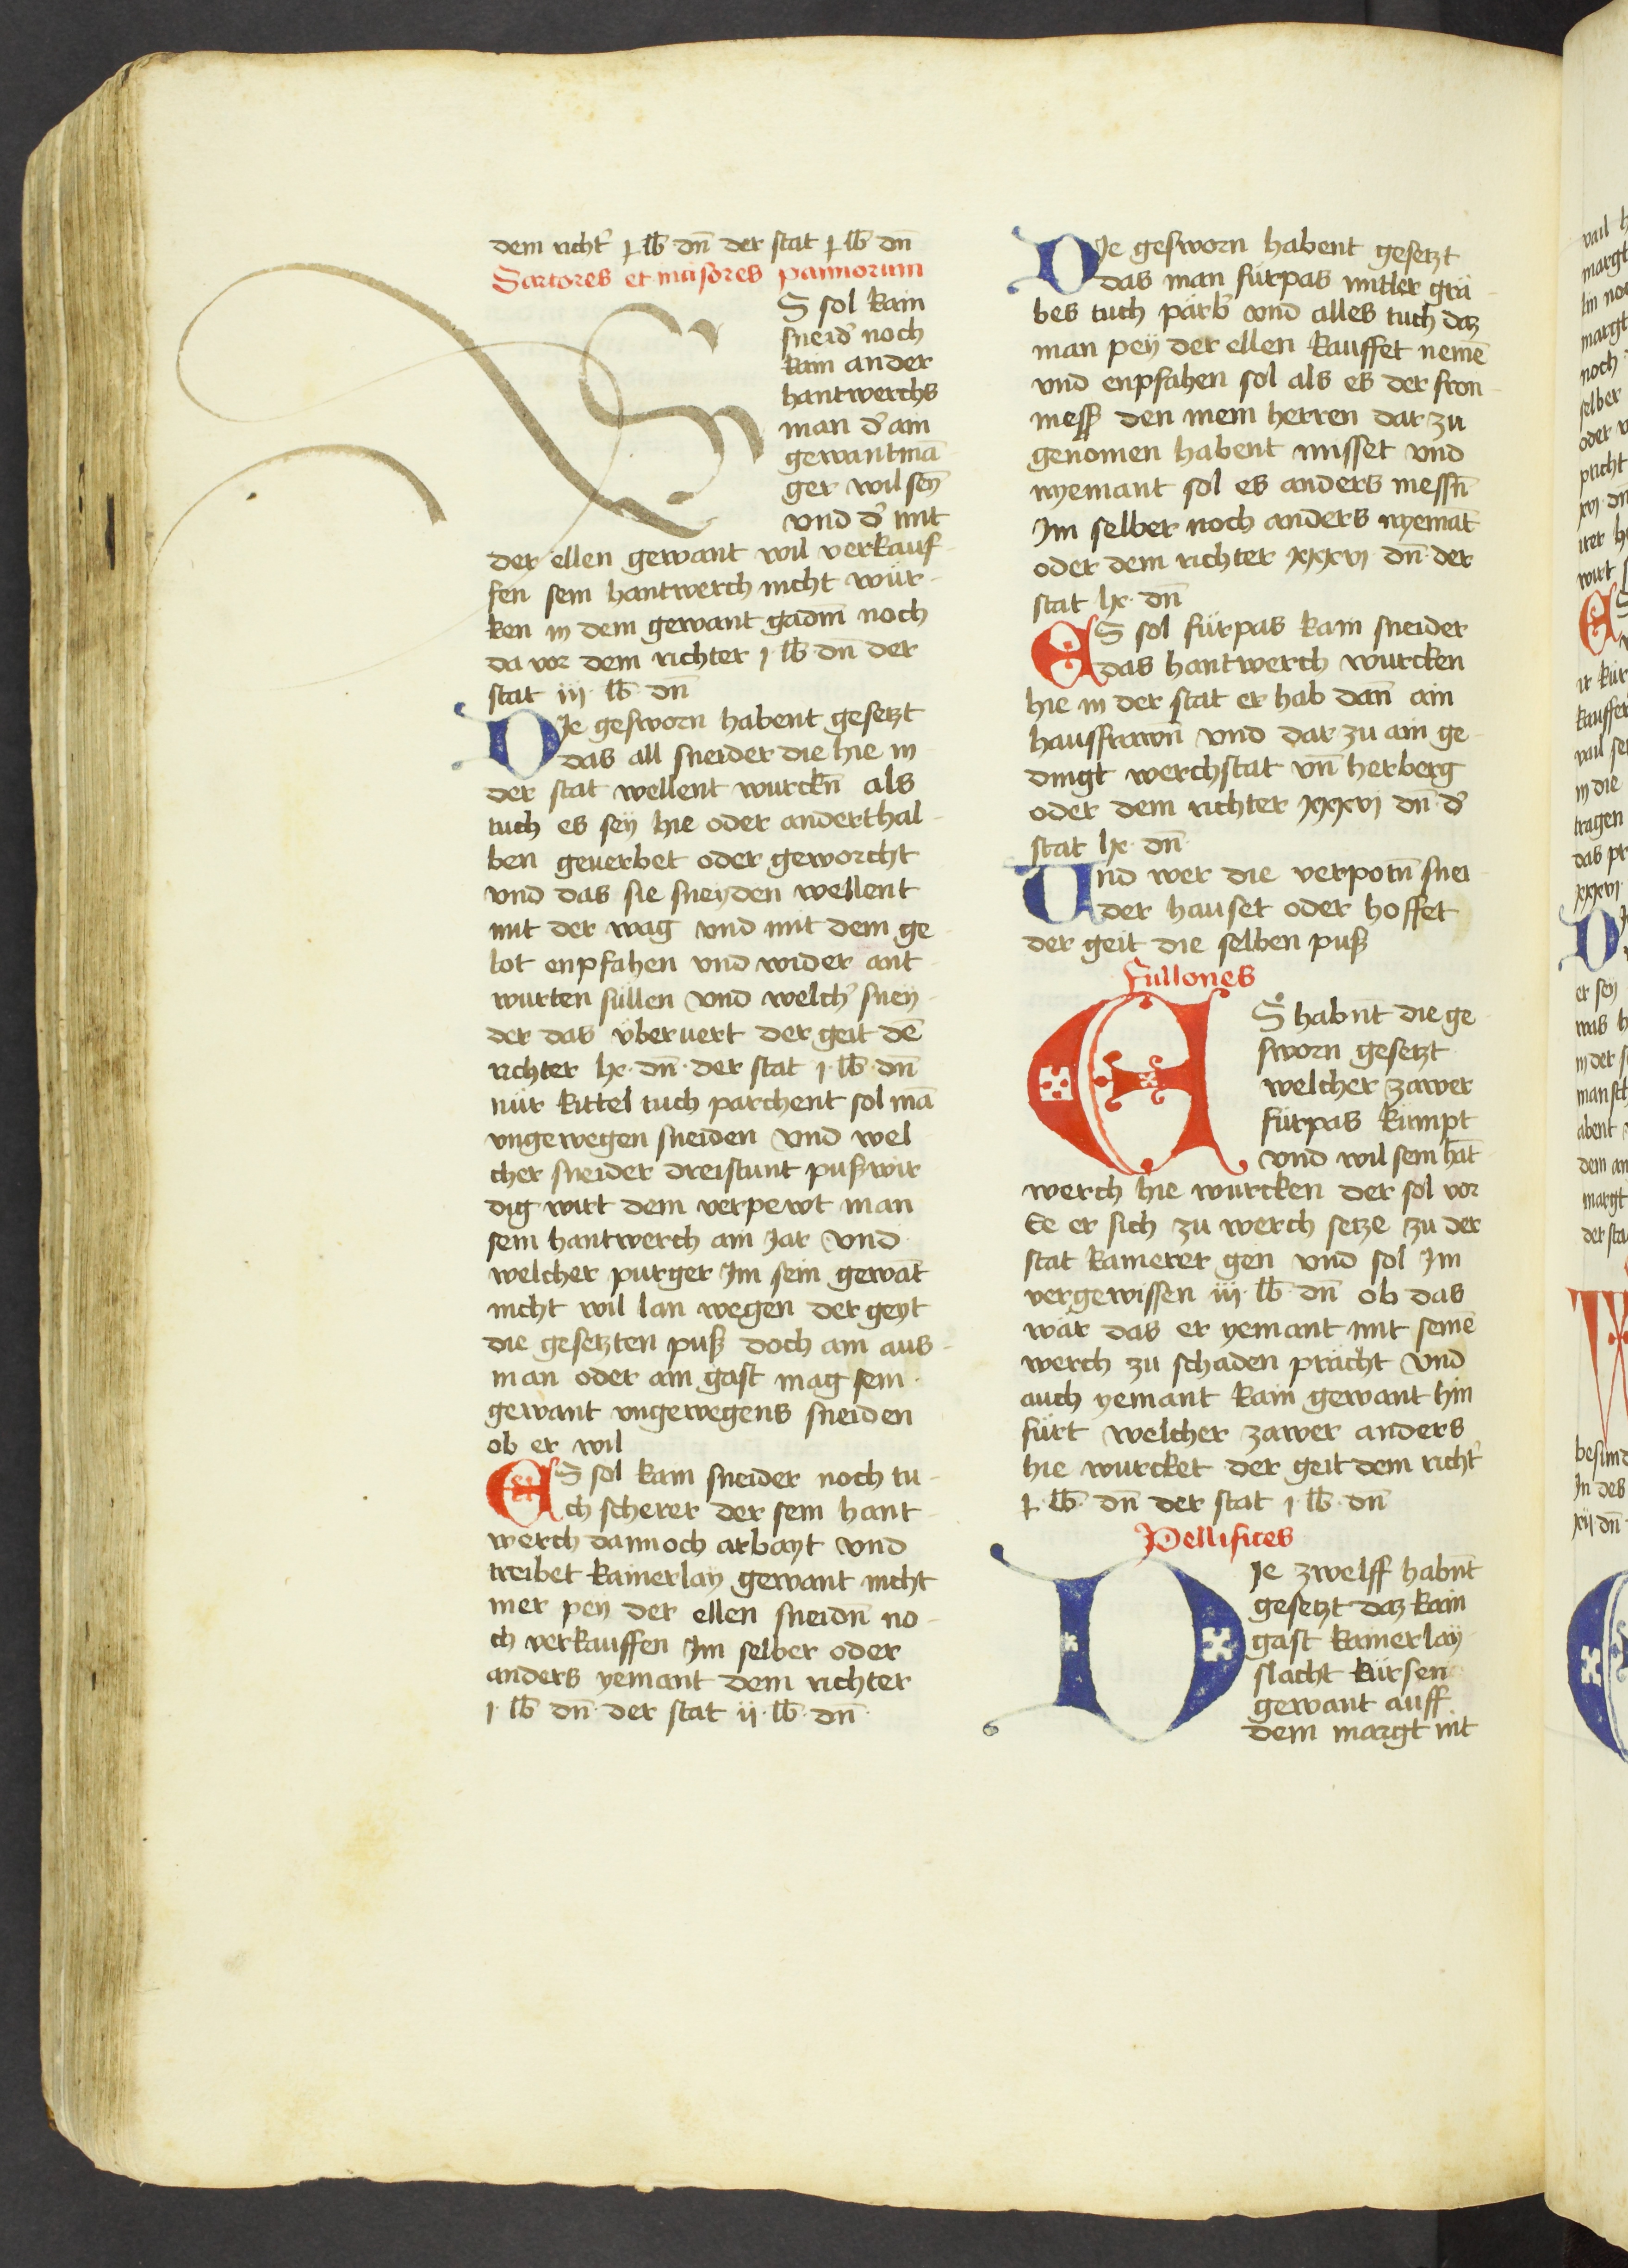 dem richt' ꝑ lb dn̄ der stat ꝑ lb dn̄
Sartores et incisores pannorum
ES sol kain
sneid' noch
kain ander
hantwerchs
man d' ain
gewantmā
ger wil seÿ
vnd d' mit
der ellen gewant wil verkauf-
fen sein hantwerch nicht wür-
ken in dem gewant gadm̄ noch
da vor dem richter j lb dn̄ der
stat iij lb dn̄
DJe gesworn habent gesetzt
das all sneider die hie in
der stat wellent wurckn̄ als
tuch es seÿ hie oder anderthal-
ben geuerbet oder geworcht
vnd das sie sneyden wellent
mit der wag vnd mit dem ge-
lot enpfahen vnd wider ant-
wurten süllen vnd welch' sney-
der das vberuert der geit dē
richter lx dn̄ der stat j lb dn̄
nür kittel tuch parchent sol mā
vngewegen sneiden vnd wel
cher sneider dreistunt pußwir
dig wirt dem verpewt man
sein hantwerch ain Jar vnd
welcher purger Jm sein gewāt
nicht wil lan wegen der geyt
die gesetzten puß doch ain aus-
man oder ain gast mag sein
gewant vngewegens sneiden
ob er wil
ES sol kain sneider noch tu-
ch scherer der sein hant-
werch dannoch arbayt vnd
treibet kainerlaÿ gewant nicht
mer peÿ der ellen sneidn̄ no-
ch verkauffen Jm selber oder
anders yemant dem richter
j lb dn̄ der stat ij lb dn̄
DJe gesworn habent gesetzt
das man fürpas mitler grä-
bes tuch pärb' vnd alles tuch daz
man peÿ der ellen kauffet nemē
vnd enpfahen sol als es der fron-
mess den mein herren dar zu
genomen habent misset vnd
nyemant sol es anders messn̄
Jm selber noch anders nyemāt
oder dem richter xxxvj dn̄ der
stat lx dn̄
ES sol fürpas kain sneider
das hantwerch wurcken
hie in der stat er hab dan̄ ain
hausfrawn̄ vnd dar zu ain ge-
dingt werchstat vn̄ herberg
oder dem richter xxxvj dn̄ d'
stat lx dn̄
Und wer die verpotn̄ snei-
der hauset oder hoffet
der geit die selben puß
Fullones
ES habn̄t die ge
sworn gesetzt
welcher zawer
fürpas kümpt
vnd wil sein hāt
werch hie wurcken der sol vor
Ee er sich zu werch setze zu der
stat kamerer gen vnd sol Jm
vergewissen iij lb dn̄ ob das
wär das er yemant mit seinē
werch zu schaden pracht vnd
auch yemant kain gewant hin
fürt welcher zawer anders
hie wurcket der geit dem richt'
ꝑ lb dn̄ der stat j lb dn̄
Pellifices
DJe zwelff habn̄t
gesetzt daz kain
gast kainerlaÿ
slacht kürsen
gewant auff
dem margt nit